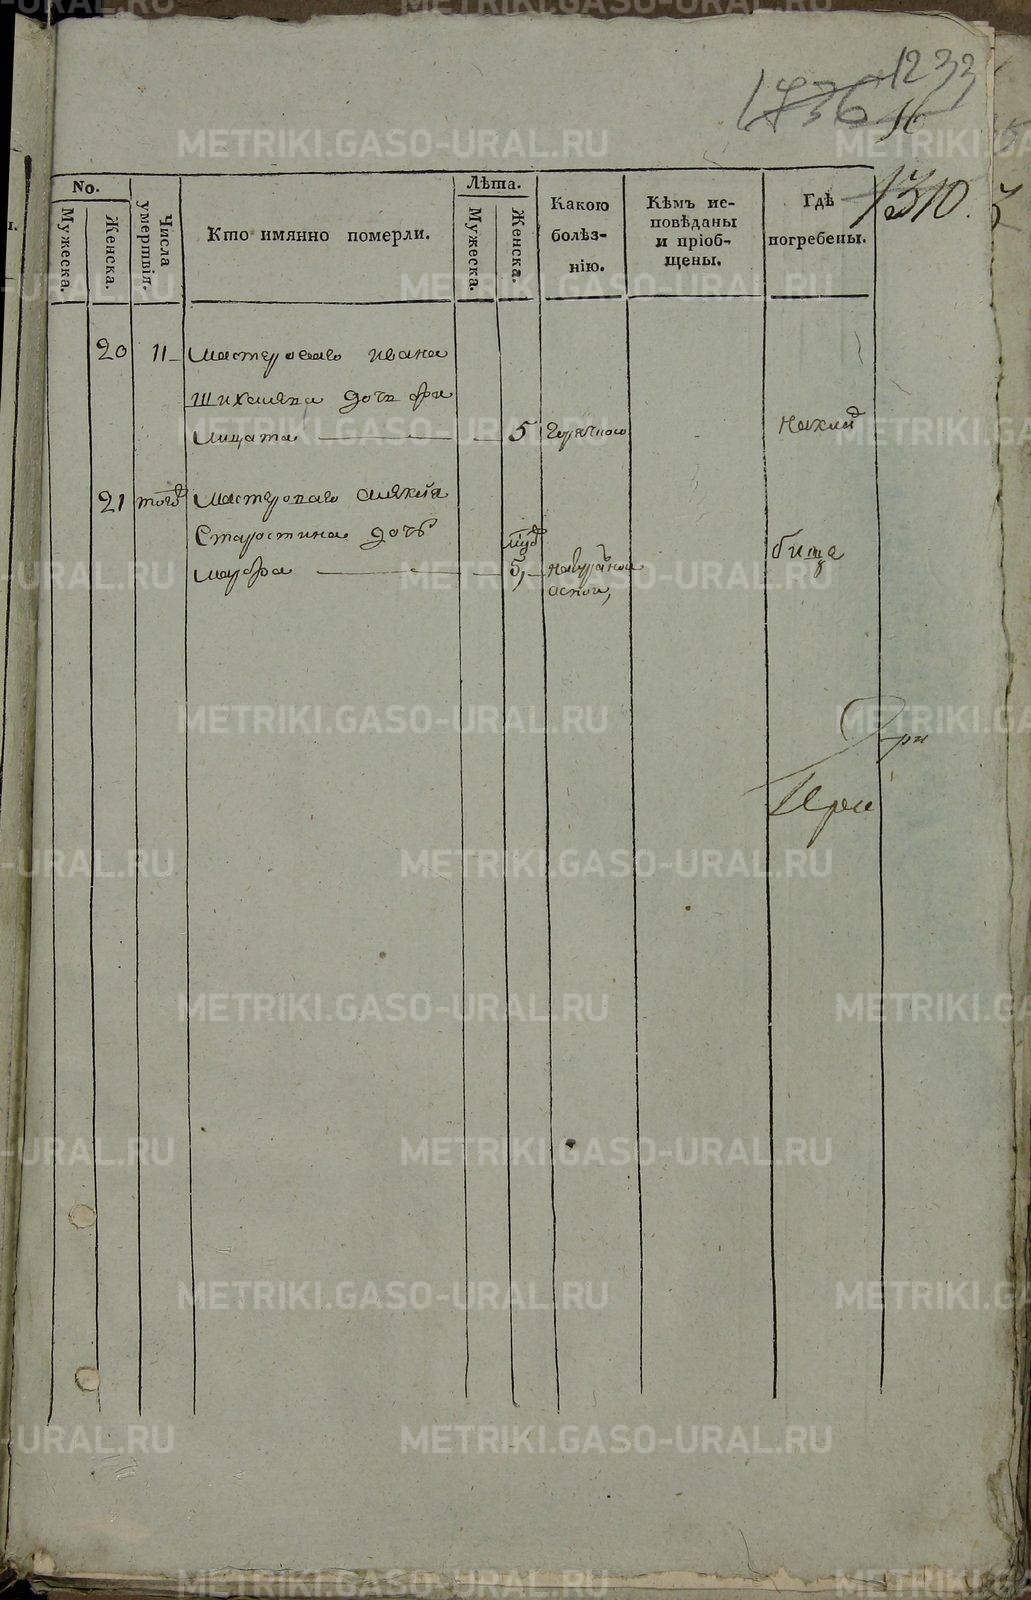 1233
1736
1310.
No.
Мужеска.
Женска.
Числа умертвія.
Кто имянно померли.
Лѣта.
Мужеска.
Женска.
Какою болѣз-
нію.
Кѣмъ ис-
повѣданы
и пріоб-
щены.
Гдѣ
погребены.
20 11 мастероваго ивана
дочь фи
лицата 5 горячкою наклад
21 того мастероваго алѣксѣя
Старостина дочь
марфа 5, натуралной бище
оспой,
При
METRIKI.GASO-URAL.RU